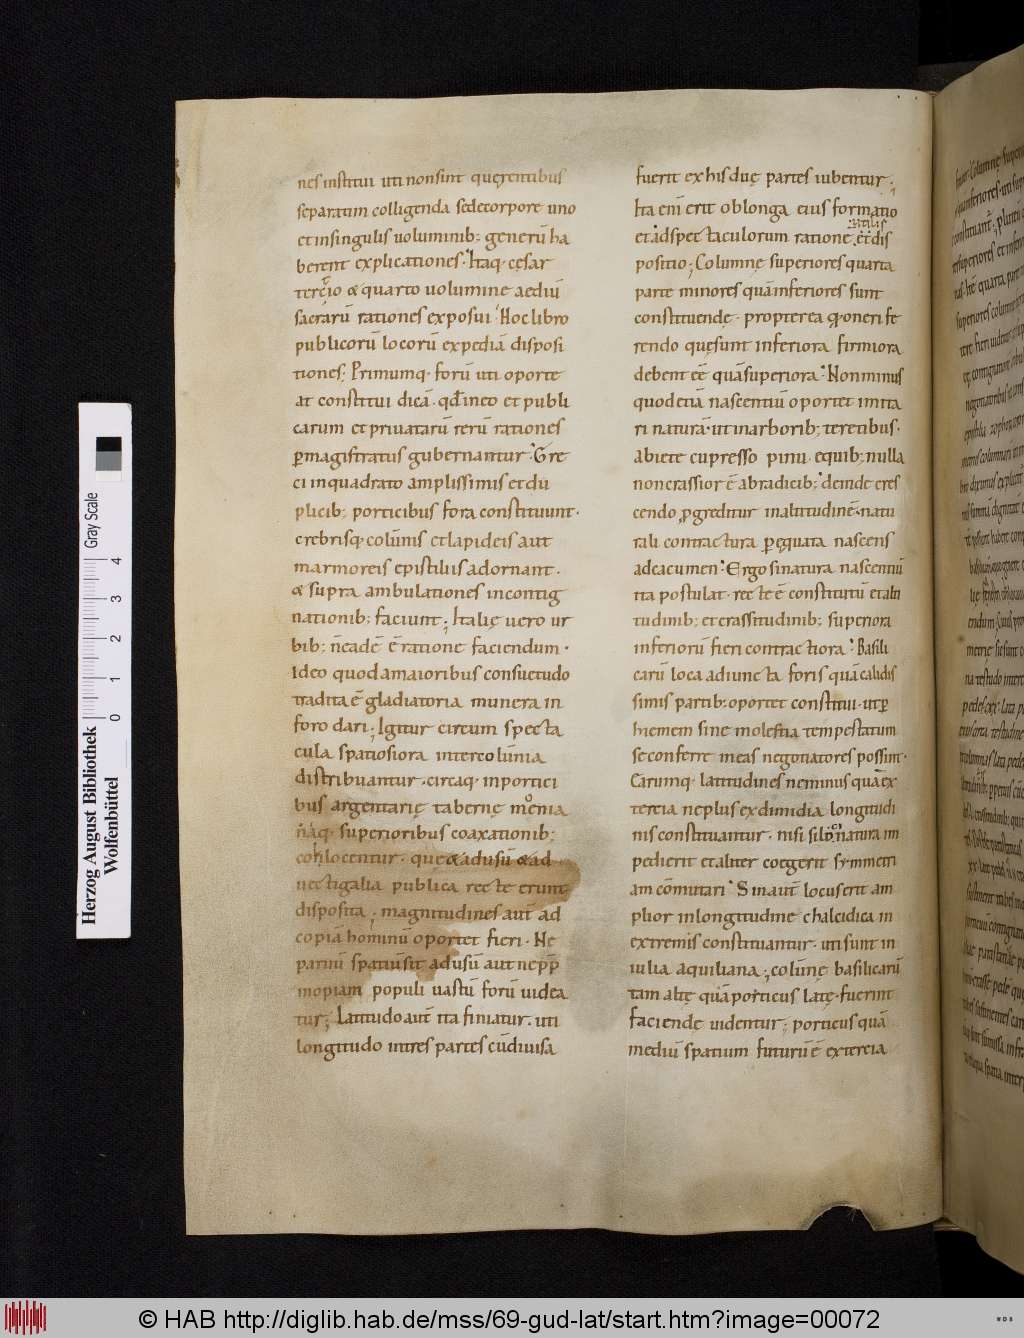 nes institui uti non sint querentibus
separatim colligenda sed e corpore uno
et in singulis uoluminib; generū ha
berent explicationes. Itaq. cęsar
tercio & quarto uolumine aediū
sacrarū rationes exposui. Hoc libro
publicorū locorū expediā disposi
tiones; Primumq. forū uti oporte
at constitui dicā. qd in eo et publi
carum et priuatarū rerū rationes
ꝑ magistratus gubernantur. Gre
ci in quadrato amplissimis et du
plicib; porticibus fora constituunt.
crebrisq; colūnis et lapideis aut
marmoreis epistiliis adornant.
& supra ambulationes in contig
nationib; faciunt; Italię uero ur
bib; n eadē ē ratione faciendum.
Ideo quod a maioribus consuetudo
tradita ē gladiatoria munera in
foro dari; Igitur circum specta
cula spatiosiora intercolūnia
distribuantur. circaq. in portici
bus argentarię tabernę moenia
naq. superioribus coaxationib;
conlocentur. que & ad usū & ad
uectigalia publica recte erunt
disposita; magnitudines aut ad
copiā hominū oportet fieri. Ne
paruū spatiū sit ad usū aut ne ꝓp
inopiam populi uastū forū uidea
tur; Latitudo aut ita finiatur. uti
longitudo in tres partes cū diuisa
fuerit ex his duę partes iubentur.
Ita eni erit oblonga eius formatio
et ad spectaculorum ratione. et dis
utilis
positio; Columnę superiores quarta
parte minores quā inferiores sunt
constituendę. propterea qđ oneri fe
rendo quę sunt inferiora firmiora
debent eē quā superiora. Non minus
quod etiā nascentiū oportet imita
ri naturā. ut in arborib; teretibus.
abiete cupresso pinu. equib; nulla
non crassior ē ab radicib; deinde cres
cendo ꝓgreditur in altitudinē. natu
rali contractura perequata nascens
ad cacumen. Ergo si natura nascentiū
ita postulat. recte ē constitutū et alti
tudinib; et crassitudinib; superiora
inferiorū fieri contractiora. Basili
carū loca adiuncta foris quā calidis
simis partib; oportet constitui. ut ꝑ
hiemem sine molestia tempestatum
se conferre in eas negotiatores possint.
Earumq. latitudines ne minus quā ex
tercia ne plus ex dimidia longitudi
nis constituantur. nisi si loci natura im
pedierit et aliter coegerit symmetri
am cōmutari. Sin aut locus erit am
plior in longitudine chalcidica in
extremis constituantur. uti sunt in
iulia aquiliana; colūnę basilicarū
tam altę quā porticus latę. fuerint
faciendę uidentur; porticus quā
mediū spatium futurū ē ex tercia
Herzog August Bibliothek
Wolfenbüttel
0 1 2 3 4
Gray Scale
© HAB http://diglib.hab.de/mss/69-gud-lat/start.htm?image=00072